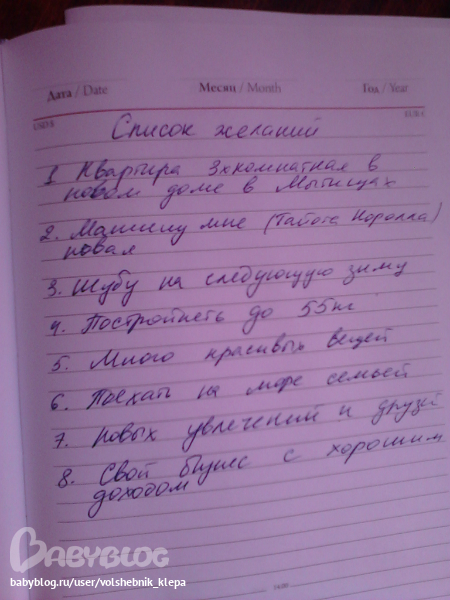 Дата / Date Месяц / Month Год / Year
USD $ EUR €
Список желаний
1. Квартира 3хкомнатная в
новом доме в Мытищах
2. Машину мне (Тайота Королла)
новая
3. Шубу на следующую зиму
4. Постройнеть до 55кг
5. Много красивых вещей
6. Поехать на море семьей
7. Новых увлечений и друзей
8. Свой бизнес с хорошим
доходом
BABYBLOG
babyblog.ru/user/volshebnik_klepa